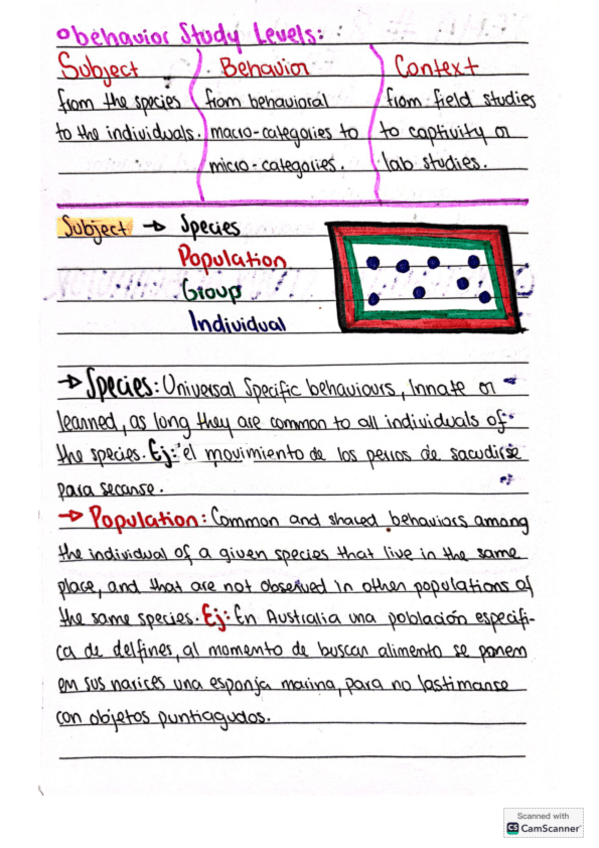 behavior Study Levels:
Subject Behavior Context
from the species from behavioral from field studies
to the individuals. macro-categories to to captivity or
micro-categories. lab studies.
Subject → Species
Population
Group
Individual
→ Species: Universal Specific behaviours, Innate or
learned, as long they are common to all individuals of
the species. Ej: el movimiento de los perros de sacudirse
para secarse.
→ Population: Common and shared behaviors among
the individual of a given species that live in the same
place, and that are not observed in other populations of
the same species. Ej: En Australia una población especifi-
ca de delfines, al momento de buscar alimento se ponen
en sus narices una esponja marina, para no lastimarse
con objetos puntiagudos.
Scanned with
CS CamScanner